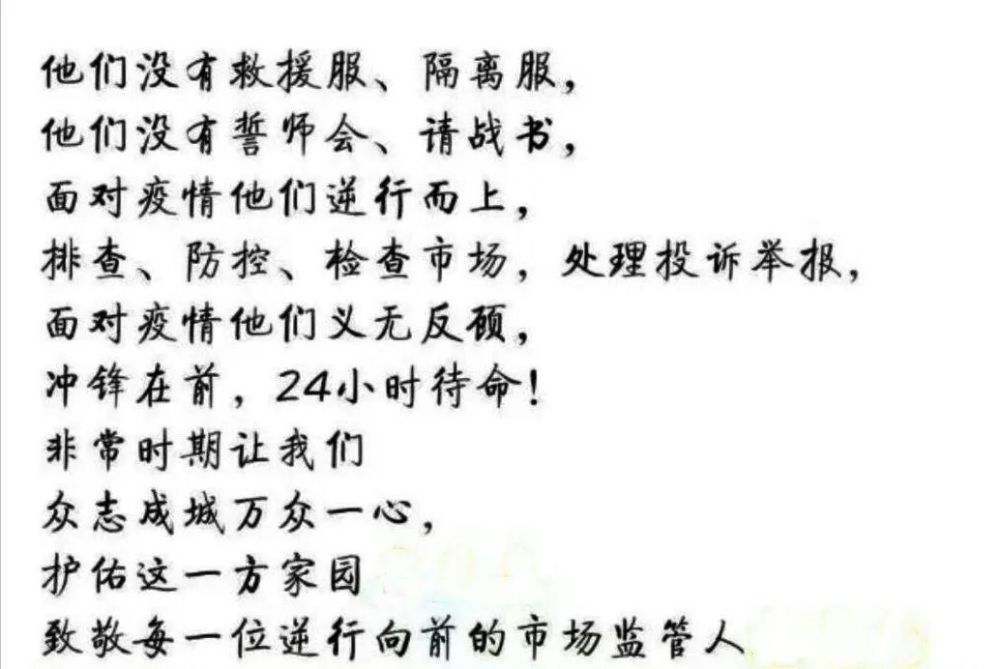 他们没有救援服、隔离服，
他们没有誓师会、请战书，
面对疫情他们逆行而上，
排查、防控、检查市场，处理投诉举报，
面对疫情他们义无反顾，
冲锋在前，24小时待命！
非常时期让我们
众志成城万众一心，
护佑这一方家园
致敬每一位逆行向前的市场监管人